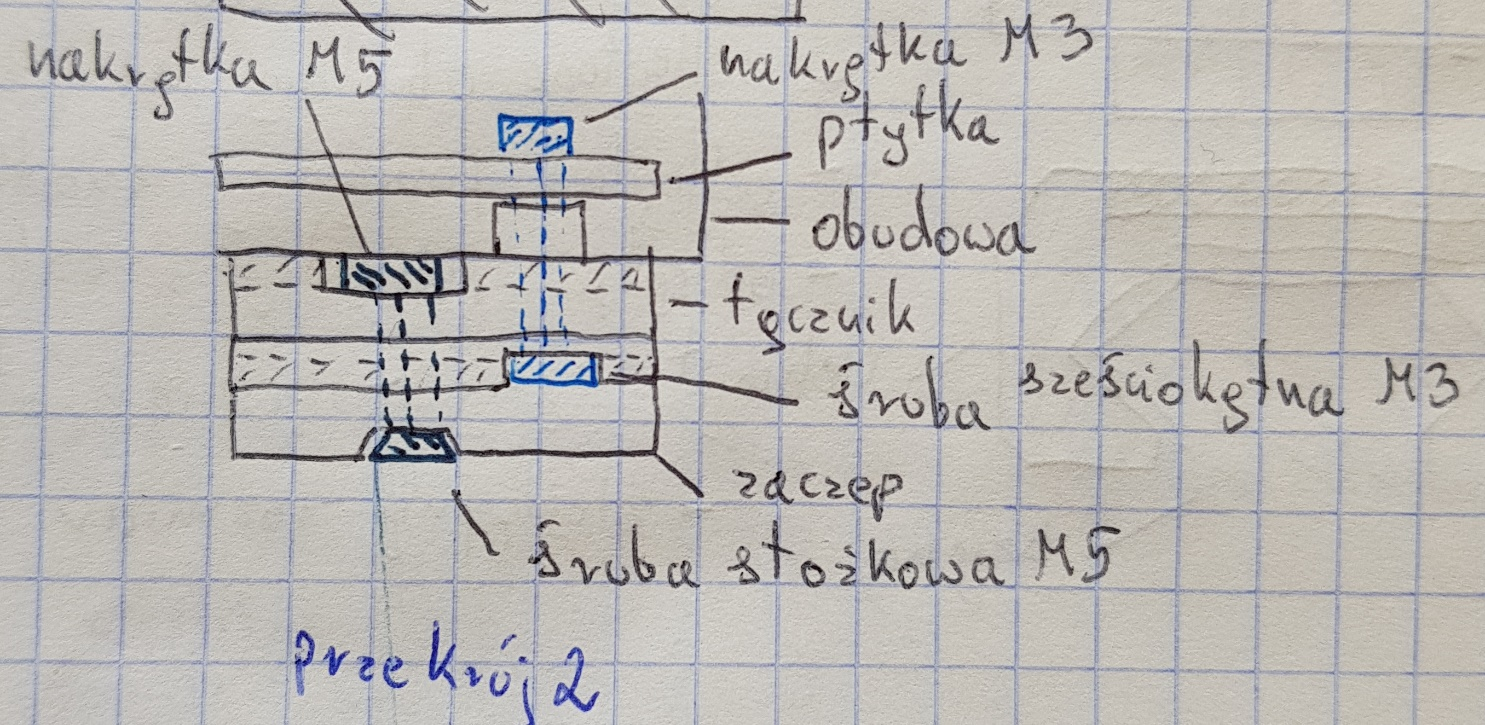 nakrętka M5
nakrętka M3
płytka
obudowa
łącznik
śruba sześciokątna M3
zaczep
śruba stożkowa M5
przekrój 2